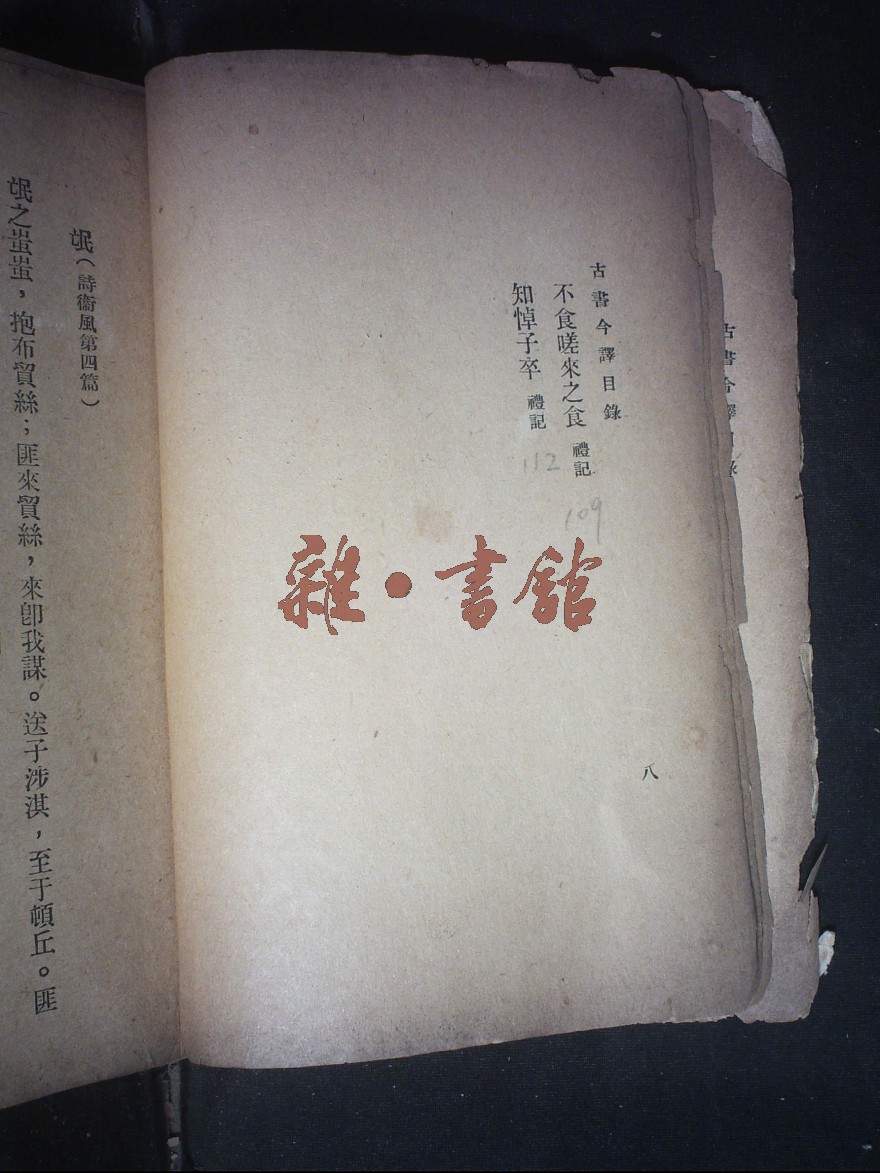 古書今譯目錄
不食嗟來之食 禮記
109
知悼子卒 禮記
112
八
雜•書館
氓（詩衞風第四篇）
氓之蚩蚩，抱布貿絲；匪來貿絲，來卽我謀。送子涉淇，至于頓丘。匪
古書今譯目錄